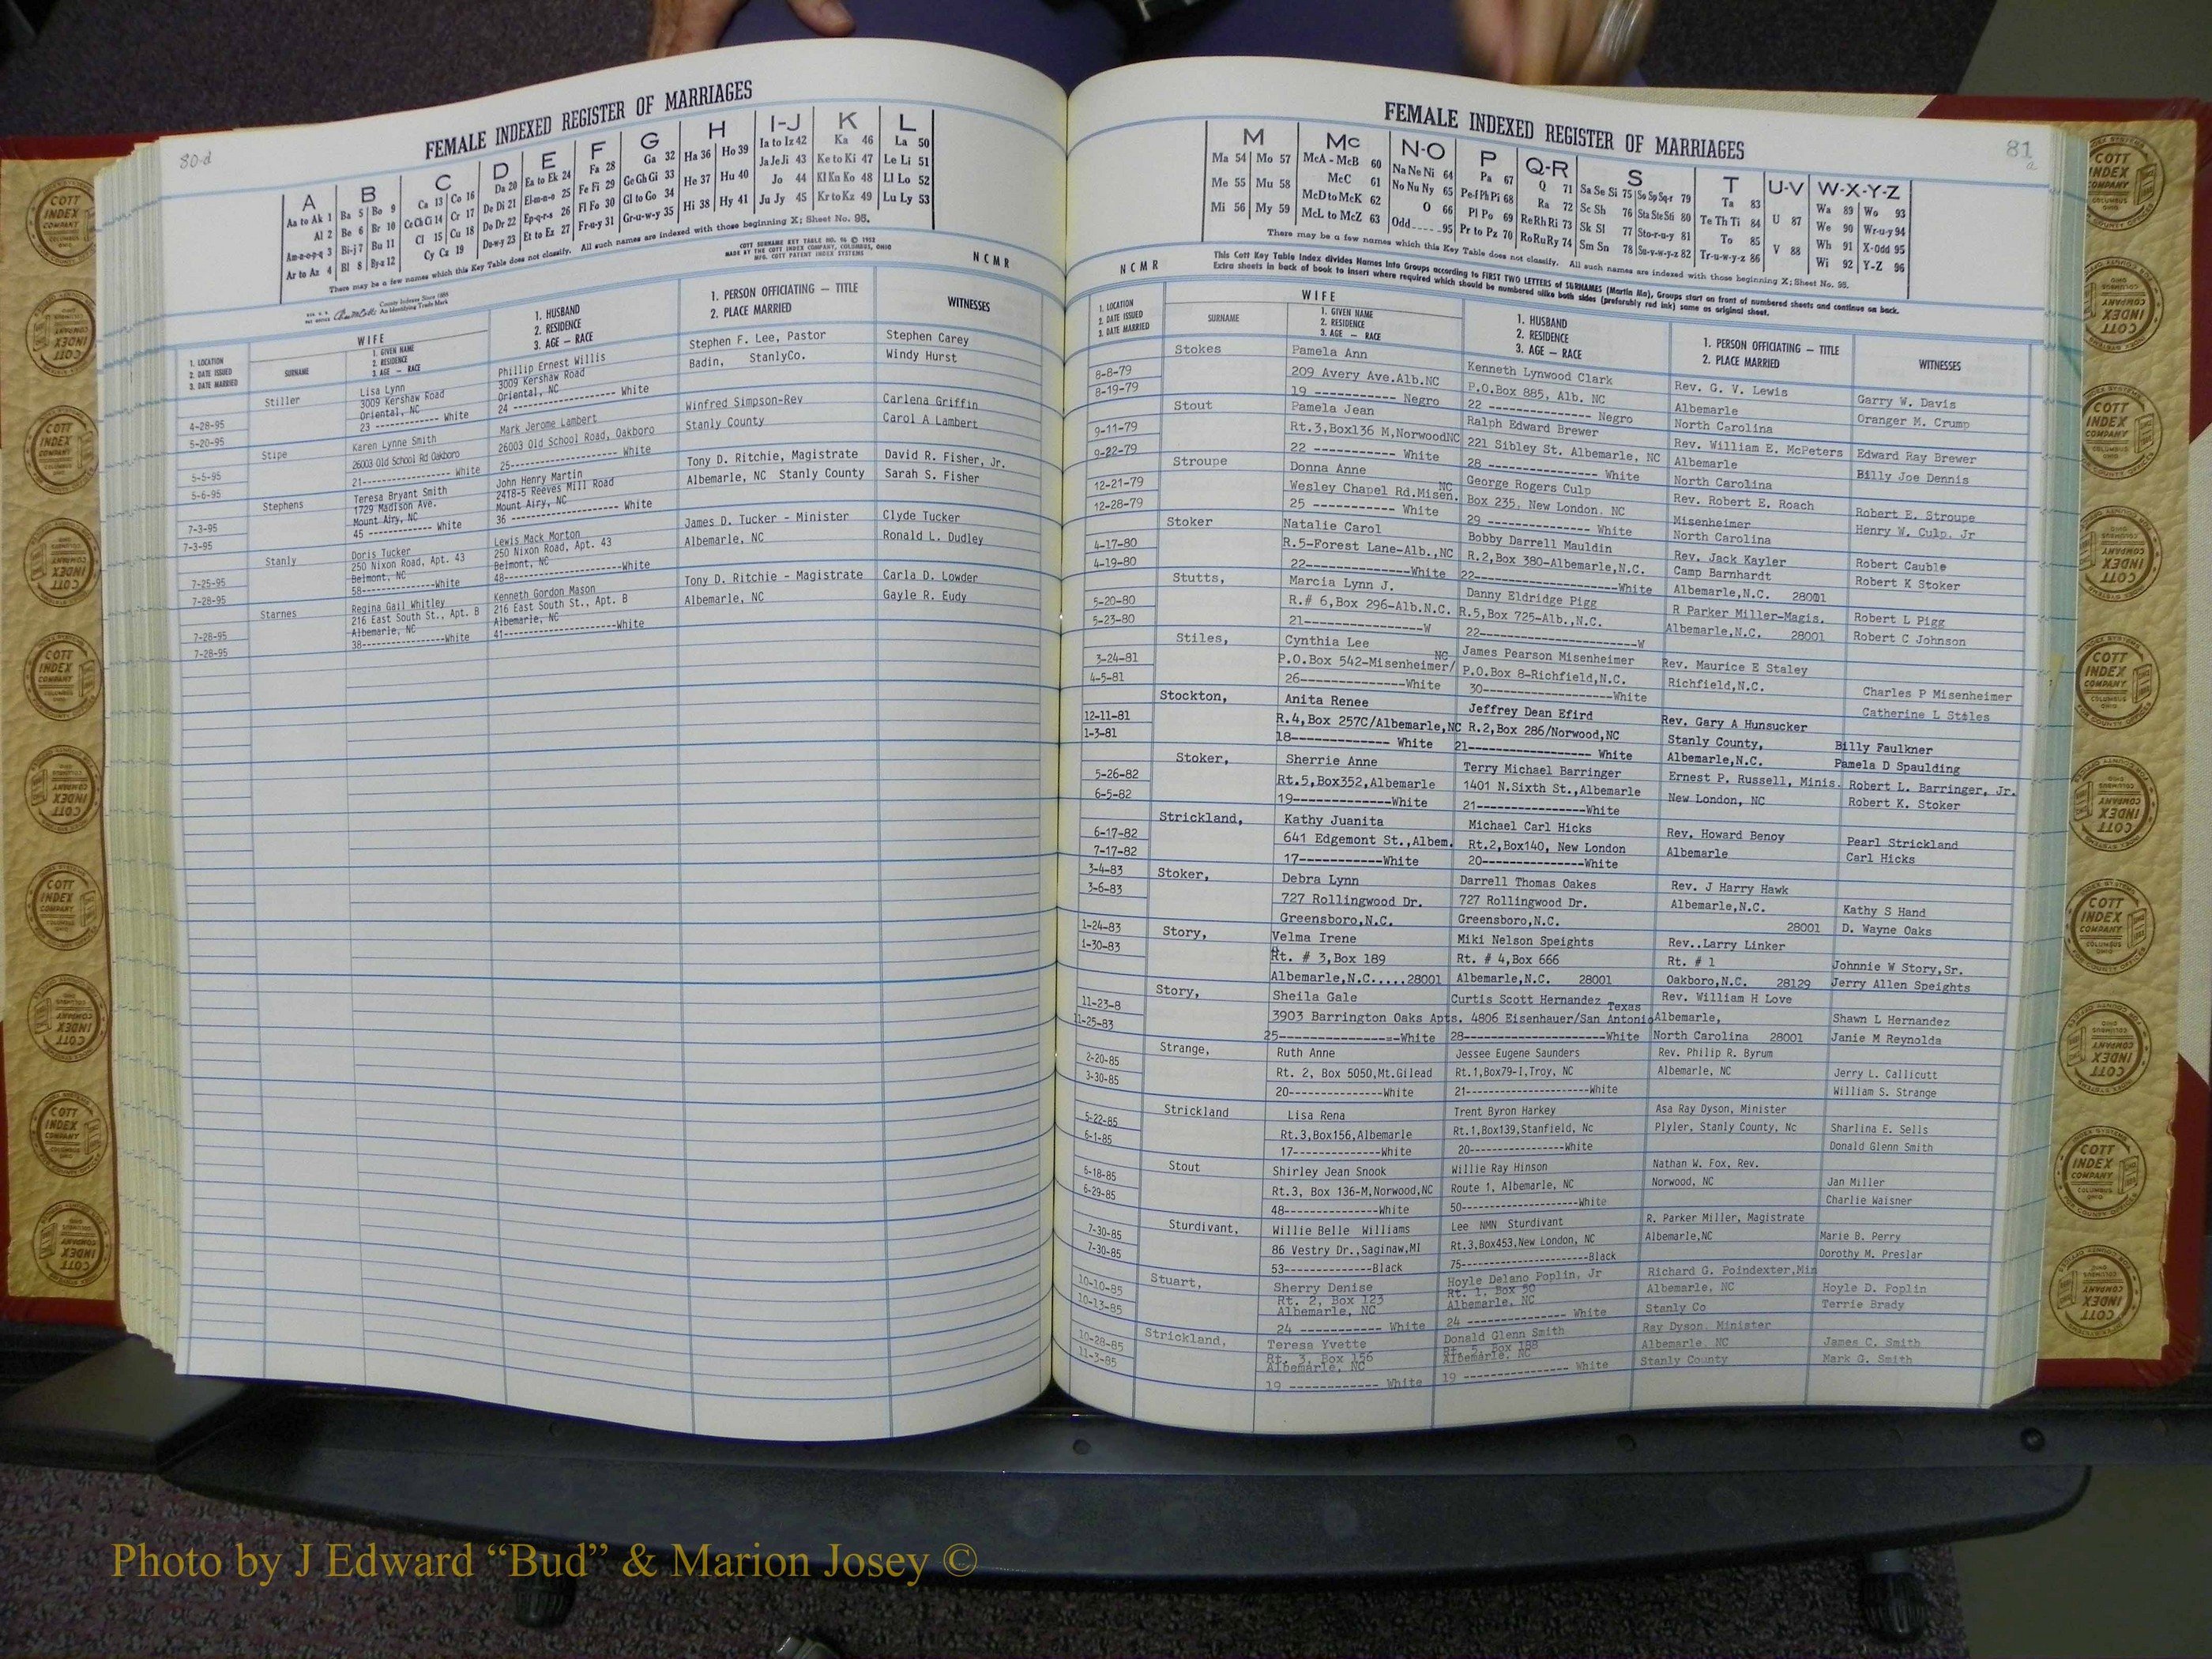 80-d
FEMALE INDEXED REGISTER OF MARRIAGES
A B C D E F G H I-J K L
Aa to Ak 1 Ba 5 Bo 9 Ca 13 Co 16 Da 20 Ea to Ek 24 Fa 28 Ga 32 Ha 36 Ho 39 Ia to Iz 42 Ka 46 La 50
Al 2 Be 6 Br 10 Ce Ch Ci 14 Cr 17 De Di 21 El-m-n-o 25 Fe Fi 29 Ge Gh Gi 33 He 37 Hu 40 Ja Je Ji 43 Ke to Ki 47 Le Li 51
Am-n-o-p-q 3 Bi-j 7 Bu 11 Cl 15 Cu 18 Do Dr 22 Ep-q-r-s 26 Fl Fo 30 Gl to Go 34 Hi 38 Hy 41 Jo 44 Kl Kn Ko 48 Ll Lo 52
Ar to Az 4 Bl 8 By-z 12 Cy Cz 19 Du-w-y 23 Et to Ez 27 Fr-u-y 31 Gr-u-w-y 35 Ju Jy 45 Kr to Kz 49 Lu Ly 53
There may be a few names which this Key Table does not classify. All such names are indexed with those beginning X; Sheet No. 95.
County Indexes Since 1888
An Identifying Trade Mark
COTT SURNAME KEY TABLE NO. 96 © 1952
MADE BY THE COTT INDEX COMPANY, COLUMBUS, OHIO
MFG. COTT PATENT INDEX SYSTEMS
N C M R
1. LOCATION
2. DATE ISSUED
3. DATE MARRIED
WIFE
SURNAME
1. GIVEN NAME
2. RESIDENCE
3. AGE — RACE
1. HUSBAND
2. RESIDENCE
3. AGE — RACE
1. PERSON OFFICIATING — TITLE
2. PLACE MARRIED
WITNESSES
4-28-95
5-20-95
Stiller
Lisa Lynn
3009 Kershaw Road
Oriental, NC
23 ------------ White
Phillip Ernest Willis
3009 Kershaw Road
Oriental, NC
24 ------------------ White
Stephen F. Lee, Pastor
Badin, StanlyCo.
Stephen Carey
Windy Hurst
5-5-95
5-6-95
Stipe
Karen Lynne Smith
26003 Old School Rd Oakboro
21----------------- White
Mark Jerome Lambert
26003 Old School Road, Oakboro
25------------------ White
Winfred Simpson-Rev
Stanly County
Carlena Griffin
Carol A Lambert
7-3-95
7-3-95
Stephens
Teresa Bryant Smith
1729 Madison Ave.
Mount Airy, NC
45 ---------- White
John Henry Martin
2418-5 Reeves Mill Road
Mount Airy, NC
36 ----------------- White
Tony D. Ritchie, Magistrate
Albemarle, NC Stanly County
David R. Fisher, Jr.
Sarah S. Fisher
7-25-95
7-28-95
Stanly
Doris Tucker
250 Nixon Road, Apt. 43
Belmont, NC
58-----------White
Lewis Mack Morton
250 Nixon Road, Apt. 43
Belmont, NC
48------------------White
James D. Tucker - Minister
Albemarle, NC
Clyde Tucker
Ronald L. Dudley
7-28-95
7-28-95
Starnes
Regina Gail Whitley
216 East South St., Apt. B
Albemarle, NC
38---------------White
Kenneth Gordon Mason
216 East South St., Apt. B
Albemarle, NC
41------------------White
Tony D. Ritchie - Magistrate
Albemarle, NC
Carla D. Lowder
Gayle R. Eudy
81
a
FEMALE INDEXED REGISTER OF MARRIAGES
M Mc N-O P Q-R S T U-V W-X-Y-Z
Ma 54 Mo 57 McA - McB 60 Na Ne Ni 64 Pa 67 Q 71 Sa Se Si 75 So Sp Sq-r 79 Ta 83 U 87 Wa 89 Wo 93
Me 55 Mu 58 McC 61 No Nu Ny 65 Pe-f Ph Pi 68 Ra 72 Sc Sh 76 Sta Ste Sti 80 Te Th Ti 84 V 88 We 90 Wr-u-y 94
Mi 56 My 59 McD to McK 62 O 66 Pl Po 69 Re Rh Ri 73 Sk Sl 77 Sto-r-u-y 81 To 85 Wh 91 X-Odd 95
McL to McZ 63 Odd 95 Pr to Pz 70 Ro Ru Ry 74 Sm Sn 78 Su-v-w-y-z 82 Tr-u-w-y-z 86 Wi 92 Y-Z 96
There may be a few names which this Key Table does not classify. All such names are indexed with those beginning X; Sheet No. 95.
N C M R
This Cott Key Table Index divides Names into Groups according to FIRST TWO LETTERS of SURNAMES (Martin Ma), Groups start on front of numbered sheets and continue on back.
Extra sheets in back of book to insert where required which should be numbered alike both sides (preferably red ink) same as original sheet.
1. LOCATION
2. DATE ISSUED
3. DATE MARRIED
WIFE
SURNAME
1. GIVEN NAME
2. RESIDENCE
3. AGE — RACE
1. HUSBAND
2. RESIDENCE
3. AGE — RACE
1. PERSON OFFICIATING — TITLE
2. PLACE MARRIED
WITNESSES
8-8-79
8-19-79
Stokes
Pamela Ann
209 Avery Ave.Alb.NC
19 ----------- Negro
Kenneth Lynwood Clark
P.O.Box 885, Alb. NC
22 -------------- Negro
Rev. G. V. Lewis
Albemarle
North Carolina
Garry W. Davis
Oranger M. Crump
9-11-79
9-22-79
Stout
Pamela Jean
Rt.3,Box136 M,NorwoodNC
22 ----------- White
Ralph Edward Brewer
221 Sibley St. Albemarle, NC
28 -------------- White
Rev. William E. McPeters
Albemarle
North Carolina
Edward Ray Brewer
Billy Joe Dennis
12-21-79
12-28-79
Stroupe
Donna Anne
Wesley Chapel Rd.Misen. NC
25 ----------- White
George Rogers Culp
Box 235, New London. NC
29 -------------- White
Rev. Robert E. Roach
Misenheimer
North Carolina
Robert E. Stroupe
Henry W. Culp, Jr
4-17-80
4-19-80
Stoker
Natalie Carol
R.5-Forest Lane-Alb.,NC
22--------------White
Bobby Darrell Mauldin
R.2,Box 380-Albemarle,N.C.
22-------------------White
Rev. Jack Kayler
Camp Barnhardt
Albemarle,N.C. 28001
Robert Cauble
Robert K Stoker
5-20-80
5-23-80
Stutts,
Marcia Lynn J.
R.# 6,Box 296-Alb.N.C.
21----------------W
Danny Eldridge Pigg
R.5,Box 725-Alb.,N.C.
22---------------------W
R Parker Miller-Magis.
Albemarle,N.C. 28001
Robert L Pigg
Robert C Johnson
3-24-81
4-5-81
Stiles,
Cynthia Lee
P.O.Box 542-Misenheimer/ NC
26----------------White
James Pearson Misenheimer
P.O.Box 8-Richfield,N.C.
30-------------------White
Rev. Maurice E Staley
Richfield,N.C.
Charles P Misenheimer
Catherine L Stiles
12-11-81
1-3-81
Stockton,
Anita Renee
R.4,Box 257C/Albemarle,NC
18------------- White
Jeffrey Dean Efird
R.2,Box 286/Norwood,NC
21------------------ White
Rev. Gary A Hunsucker
Stanly County,
Albemarle,N.C.
Billy Faulkner
Pamela D Spaulding
5-26-82
6-5-82
Stoker,
Sherrie Anne
Rt.5,Box352,Albemarle
19--------------White
Terry Michael Barringer
1401 N.Sixth St.,Albemarle
21----------------White
Ernest P. Russell, Minis.
New London, NC
Robert L. Barringer, Jr.
Robert K. Stoker
6-17-82
7-17-82
Strickland,
Kathy Juanita
641 Edgemont St.,Albem.
17-----------White
Michael Carl Hicks
Rt.2,Box140, New London
20---------------White
Rev. Howard Benoy
Albemarle
Pearl Strickland
Carl Hicks
3-4-83
3-6-83
Stoker,
Debra Lynn
727 Rollingwood Dr.
Greensboro,N.C.
Darrell Thomas Oakes
727 Rollingwood Dr.
Greensboro,N.C.
Rev. J Harry Hawk
Albemarle,N.C.
28001
Kathy S Hand
D. Wayne Oaks
1-24-83
1-30-83
Story,
Velma Irene
Rt. # 3,Box 189
Albemarle,N.C.....28001
Miki Nelson Speights
Rt. # 4,Box 666
Albemarle,N.C. 28001
Rev..Larry Linker
Rt. # 1
Oakboro,N.C. 28129
Johnnie W Story,Sr.
Jerry Allen Speights
11-23-8
11-25-83
Story,
Sheila Gale
3903 Barrington Oaks Apts.
25----------------White
Curtis Scott Hernandez
4806 Eisenhauer/San Antonio Texas
28---------------------White
Rev. William H Love
Albemarle,
North Carolina 28001
Shawn L Hernandez
Janie M Reynolds
2-20-85
3-30-85
Strange,
Ruth Anne
Rt. 2, Box 5050,Mt.Gilead
20--------------White
Jessee Eugene Saunders
Rt.1,Box79-I,Troy, NC
21-------------------White
Rev. Philip R. Byrum
Albemarle, NC
Jerry L. Callicutt
William S. Strange
5-22-85
6-1-85
Strickland
Lisa Rena
Rt.3,Box156,Albemarle
17-------------White
Trent Byron Harkey
Rt.1,Box139,Stanfield, Nc
20--------------White
Asa Ray Dyson, Minister
Plyler, Stanly County, Nc
Sharlina E. Sells
Donald Glenn Smith
6-18-85
6-29-85
Stout
Shirley Jean Snook
Rt.3, Box 136-M,Norwood,NC
48--------------White
Willie Ray Hinson
Route 1, Albemarle, NC
50------------------White
Nathan W. Fox, Rev.
Norwood, NC
Jan Miller
Charlie Waisner
7-30-85
7-30-85
Sturdivant,
Willie Belle Williams
86 Vestry Dr.,Saginaw,MI
53--------------Black
Lee NMN Sturdivant
Rt.3,Box453,New London, NC
75-------------------Black
R. Parker Miller, Magistrate
Albemarle,NC
Marie B. Perry
Dorothy M. Preslar
10-10-85
10-13-85
Stuart,
Sherry Denise
Rt. 2, Box 123
Albemarle, NC
24 ----------- White
Hoyle Delano Poplin, Jr
Rt. 1, Box 50
Albemarle, NC
24 -------------- White
Richard G. Poindexter,Min
Albemarle, NC
Stanly Co
Hoyle D. Poplin
Terrie Brady
10-28-85
11-3-85
Strickland,
Teresa Yvette
Rt. 3, Box 156
Albemarle, NC
19 ------------ White
Donald Glenn Smith
Rt. 5, Box 188
Albemarle, NC
19 --------------- White
Ray Dyson, Minister
Albemarle, NC
Stanly County
James C. Smith
Mark G. Smith
COTT INDEX COMPANY COLUMBUS OHIO
Photo by J Edward “Bud” & Marion Josey ©